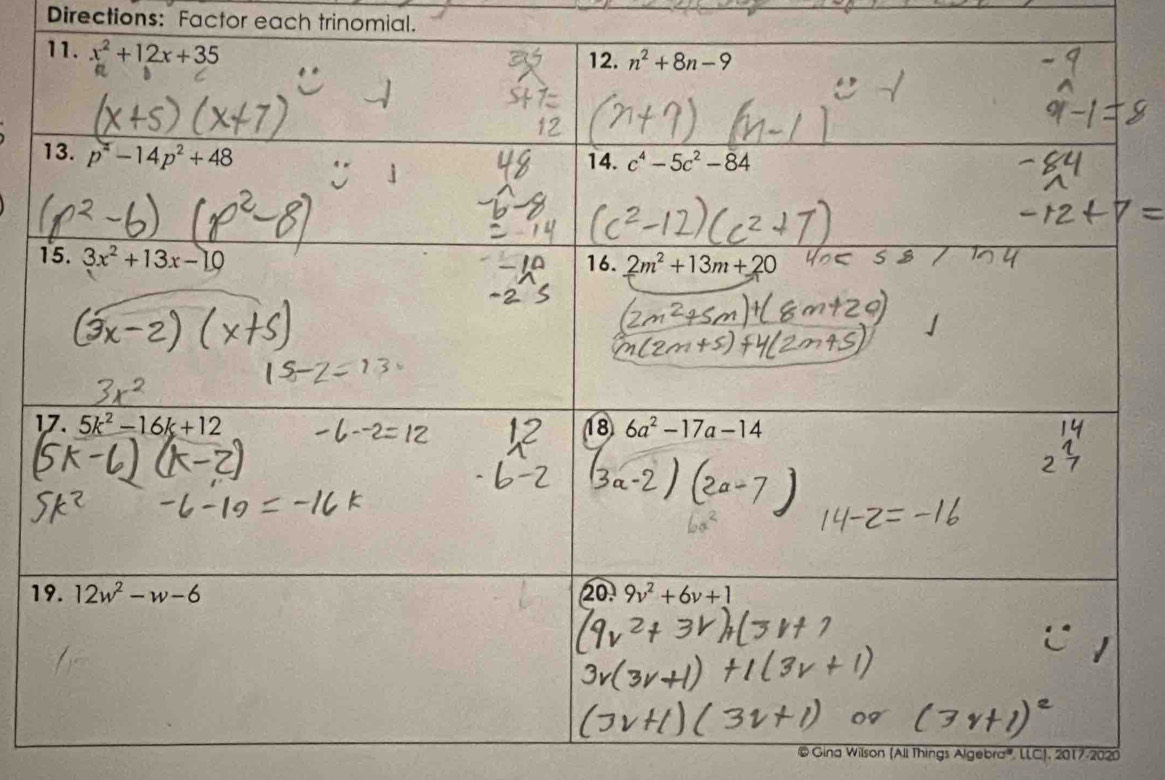 Directions: Factor each trinomial.
11. x² + 12x + 35
a b c
(x+5) (x+7)
35
5+7=
12
12. n² + 8n − 9
(n+9) (n-1)
-9
9-1=8
13. p⁴ − 14p² + 48
(p²-6) (p²-8)
48
-6-8
= -14
14. c⁴ − 5c² − 84
(c²-12)(c²+7)
-84
-12+7=
15. 3x² + 13x − 10
(3x-2) (x+5)
-10
-2 5
15-2=13
3x²
16. 2m² + 13m + 20
(2m²+5m)+(8m+20)
m(2m+5)+4(2m+5)
17. 5k² − 16k + 12
-6--2=12
12
-6-2
(5k-6) (k-2)
5k² -6-10=-16k
18. 6a² − 17a − 14
14
2 7
(3a-2) (2a-7)
6a²
14-2=-16
19. 12w² − w − 6
20. 9v² + 6v + 1
(9v²+3v)+(3v+1
3v(3v+1) +1(3v+1)
(3v+1)(3v+1) or (3v+1)²
© Gina Wilson (All Things Algebra®, LLC), 2017-2020